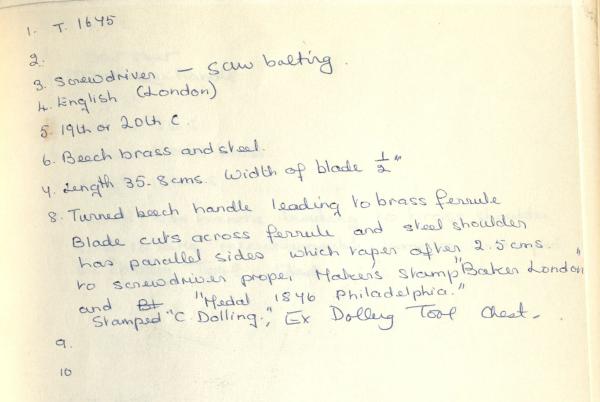 1. T. 1645
2.
3. Screwdriver — saw bolting.
4. English (London)
5. 19th or 20th C.
6. Beech brass and steel.
7. Length 35.8cms. Width of blade ½"
8. Turned beech handle leading to brass ferrule
Blade cuts across ferrule and steel shoulder
has parallel sides which taper after 2.5cms.
to screwdriver proper Makers stamp "Baker London"
and "Medal 1876 Philadelphia."
Stamped "C. Dolling.", Ex Dolling Tool Chest.
9.
10